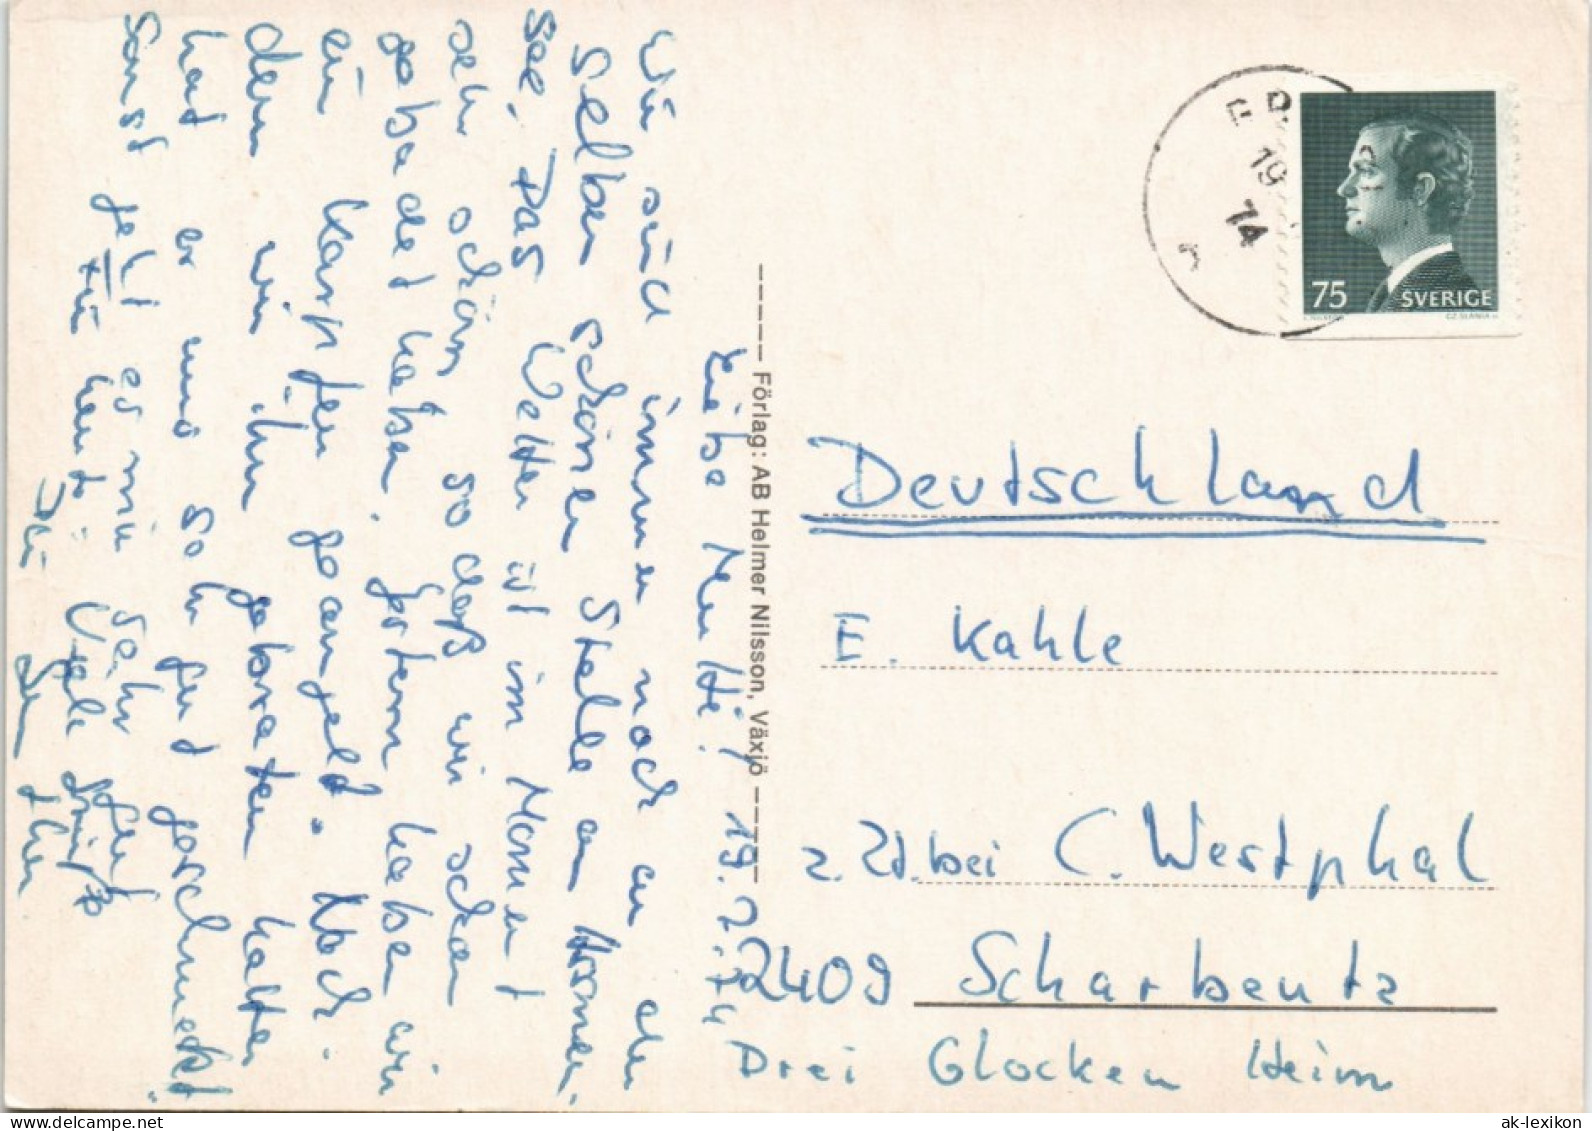 Liebe Mutti! 19.7.74
Wir sind immer noch an der
selben schönen Stelle am
see. Das Wetter ist im Moment
sehr schön so daß wir schon
gebadet haben. Gestern haben wir
ein Karpfen geangelt. Nach-
dem wir ihn gebraten hatten
hat er uns sehr gut geschmeckt
sonst geht es mir sehr gut.
Für heute Viele Grüße
Dein
---- Förlag: AB Helmer Nilsson, Växjö ----
19
74
75
SVERIGE
CZ.SLANIA
Deutschland
E. Kahle
z. Zt. bei C. Westphal
2409 Scharbeutz
Drei Glocken Heim
ak-lexikon